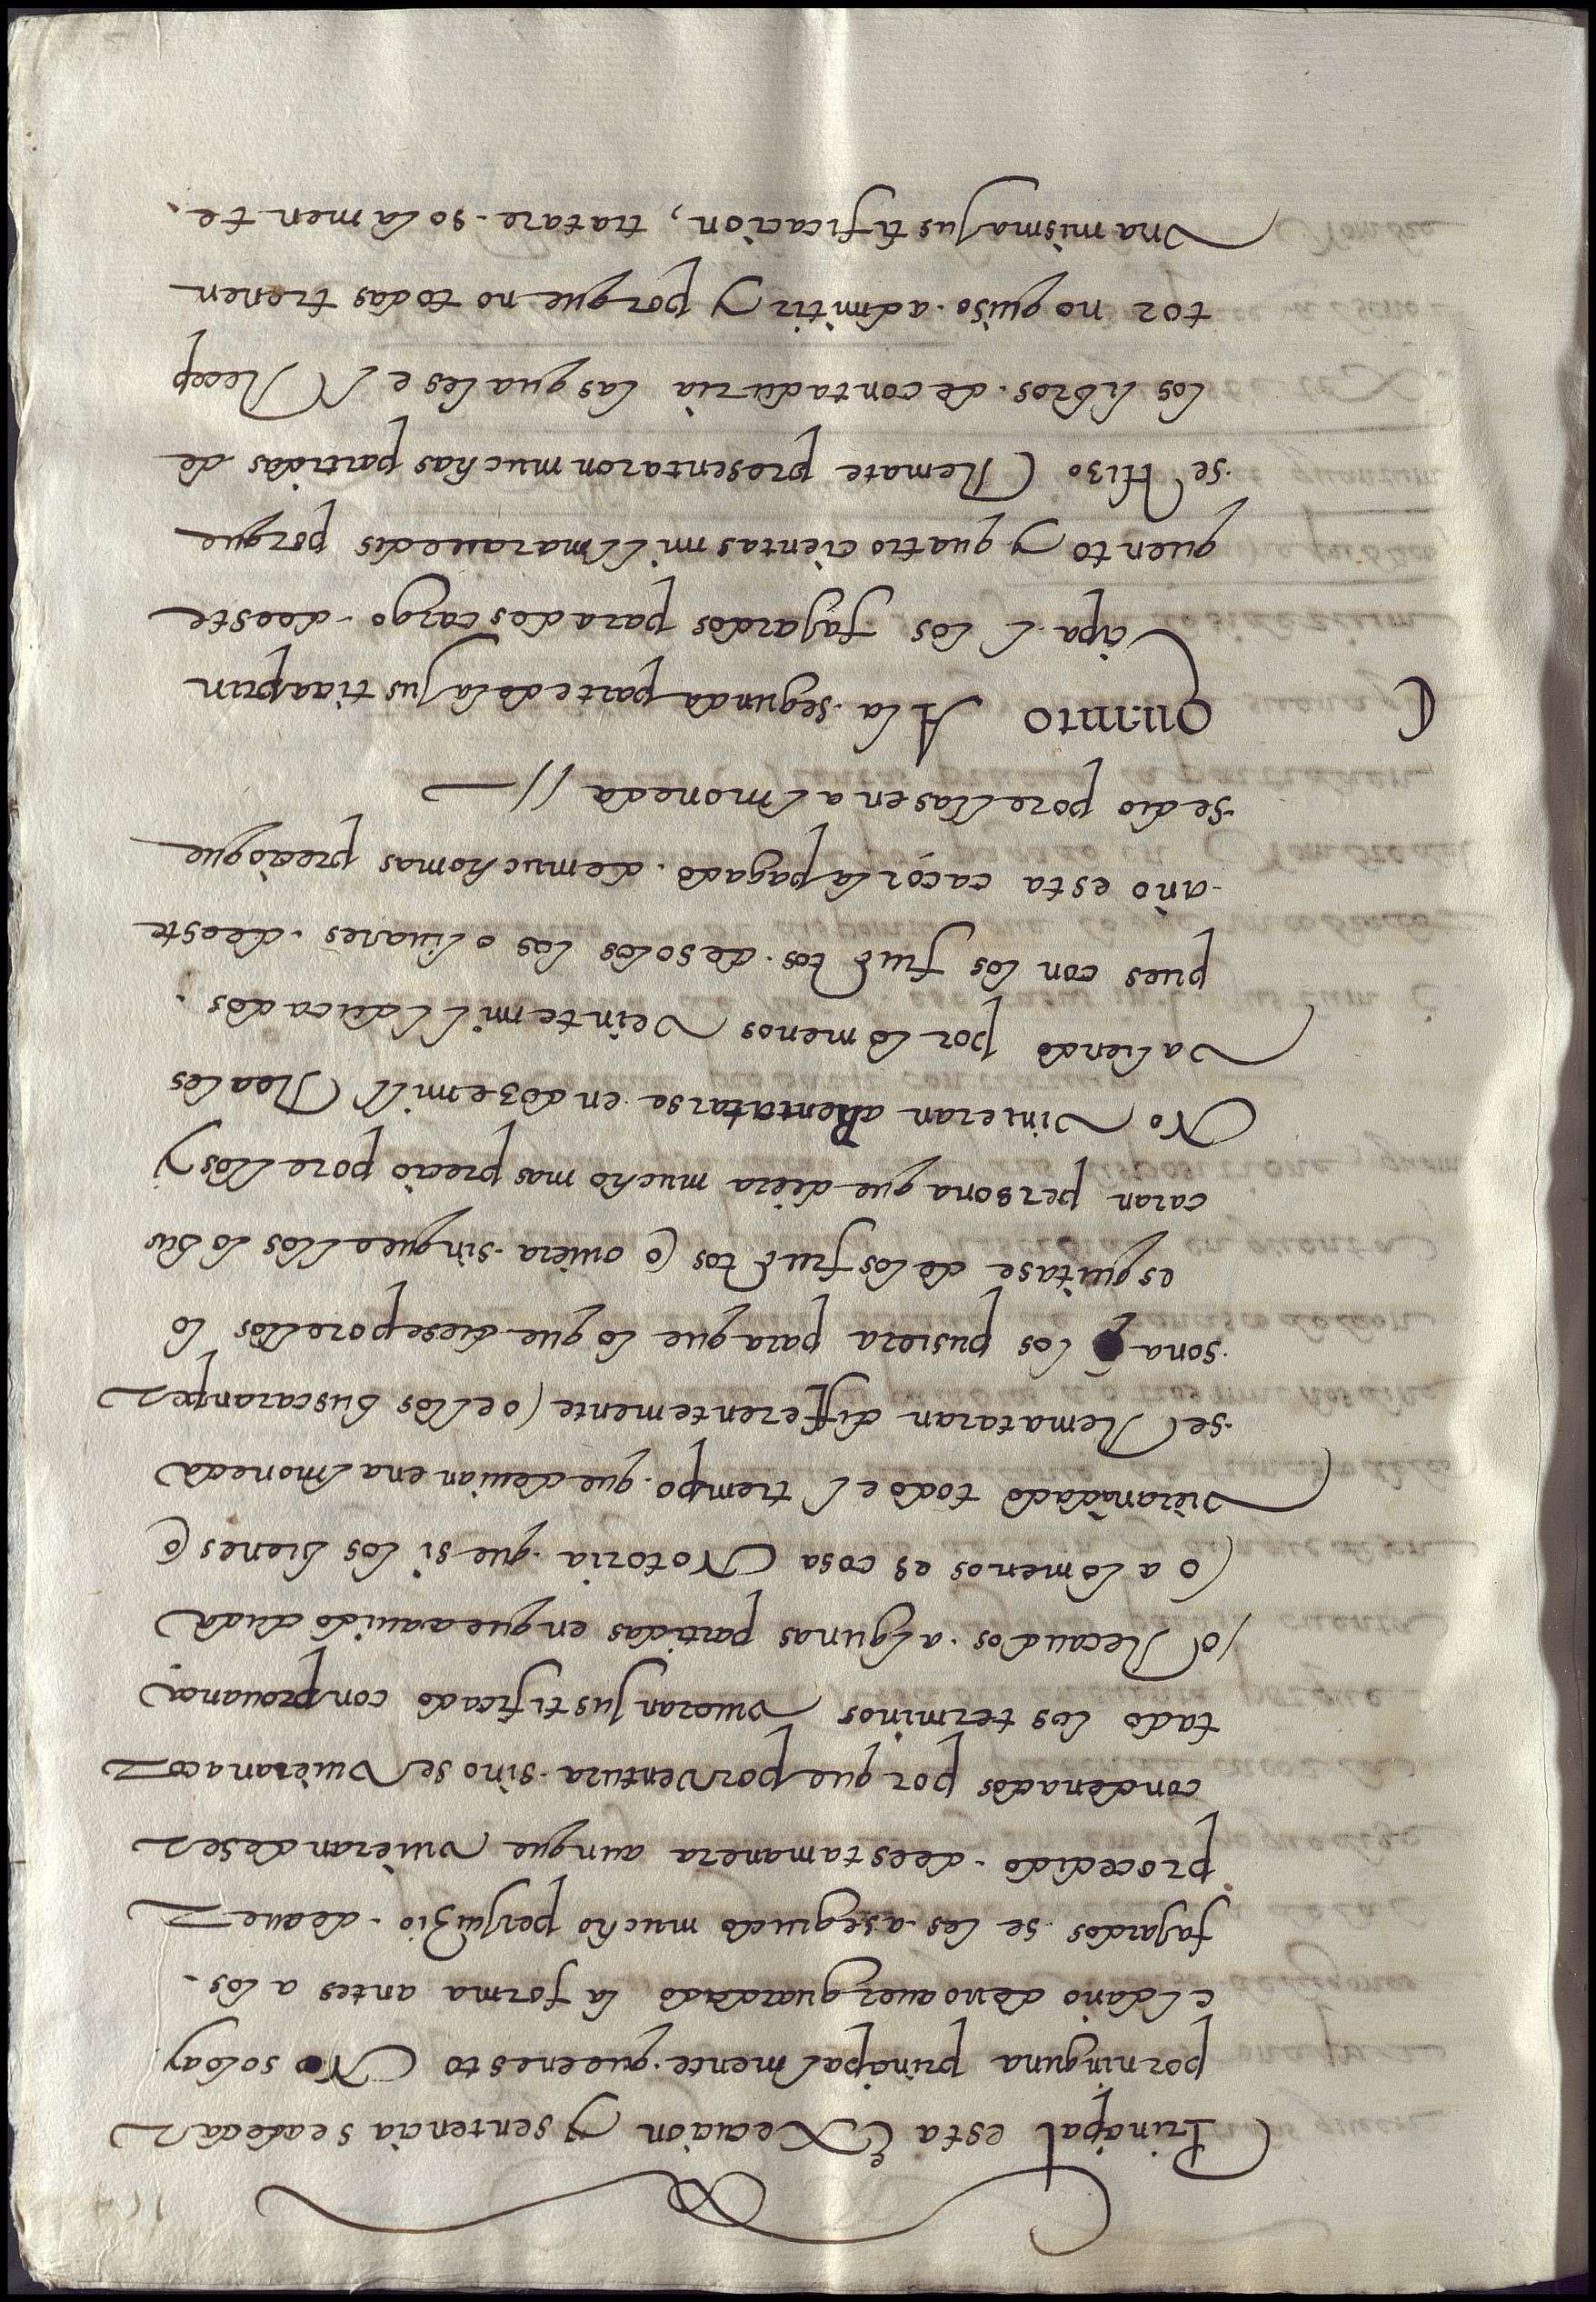 Principal esta Execucion y sentencia se a de dar
por ninguna principalmente que en esto No solo ay
el daño de no auer guardado la forma antes a los
fajardos se les a seguido mucho perjuizio de auer
procedido de esta manera aunque vuieran de ser
condenados por que por ventura si no se vuieran aco
tado los terminos vuieran justificado con prouança
o Recaudos algunas partidas en que a auido duda
o a lo menos es cosa Notoria que si los bienes o
vieran ãdado todo el tiempo que deuian en almoneda
se Remataran differentemente o ellos buscaran per
sona q̃ los pusiera para que lo que diese por ellos lo
esquitase de los fructos o ouiera sin que ellos lo bus
caran persona que diera mucho mas precio por ellos y
No vinieran a Rematarse en doze mill Reales
valiendo por lo menos veinte mill ducados
pues con los fructos de solos las oliuares de este
año esta caçorla pagado de mucho mas precio que
se dio por ellas en almoneda //
Quinto A la segunda parte de la justicia prin
cipal los fajardos para descargo de este
quento y quatrocientas mill marauedis porque
se Hizo Remate presentaron muchas partidas de
los libros de contaduria las quales el Recep
tor no quiso admitir y porque no todas tienen
vna misma justificacion, tratare solamente